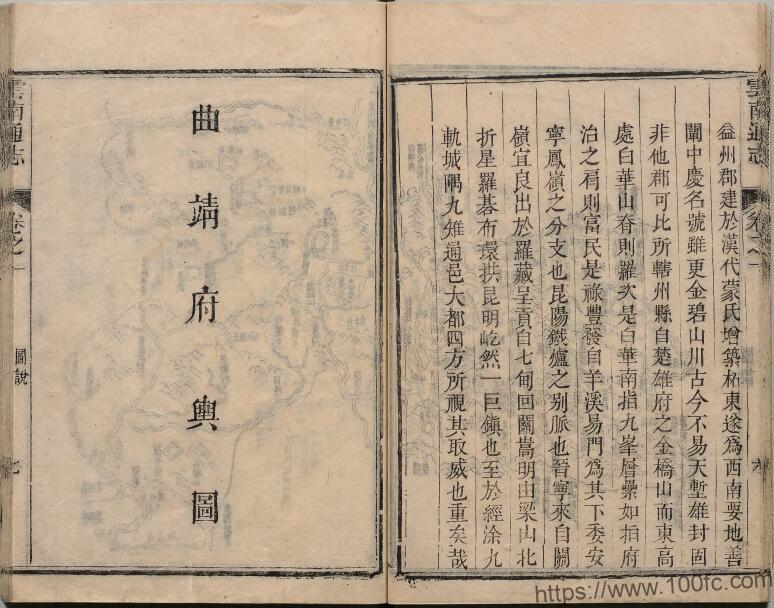 雲南通志
卷之一
六
益州郡建於漢代蒙氏增築柘東遂為西南要地善
闡中慶名號雖更金碧山川古今不易天塹雄封固
非他郡可比所轄州縣自楚雄府之金橋山而東高
處曰華山脊則羅次是曰華南指九峯層纍如指府
治之肩則富民是祿豐發自羊溪易門為其下委安
寧鳳嶺之分支也昆陽鐵爐之別脈也晉寧來自關
嶺宜良出於羅藏呈貢自七甸回關嵩明由梁山北
折星羅碁布環拱昆明屹然一巨鎮也至於經涂九
軌城隅九雉通邑大都四方所視其取威也重矣哉
曲靖府輿圖
雲南通志
卷之一
圖說
七
https://www.100fc.com